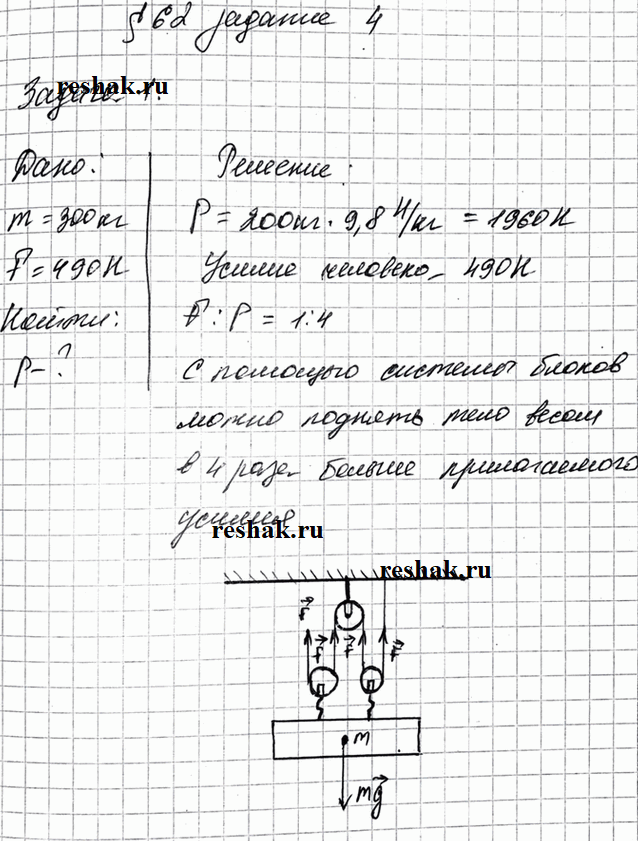 § 62 задание 4
Задача 1.
reshak.ru
Дано:
m = 300кг
F = 490Н
Найти:
P - ?
Решение:
P = 200кг · 9,8 Н/кг = 1960Н
Усилие человека - 490Н
F : P = 1:4
С помощью системы блоков
можно поднять тело весом
в 4 раза больше прилагаемого
усилия
reshak.ru
reshak.ru
F
F
F
F
m
mg